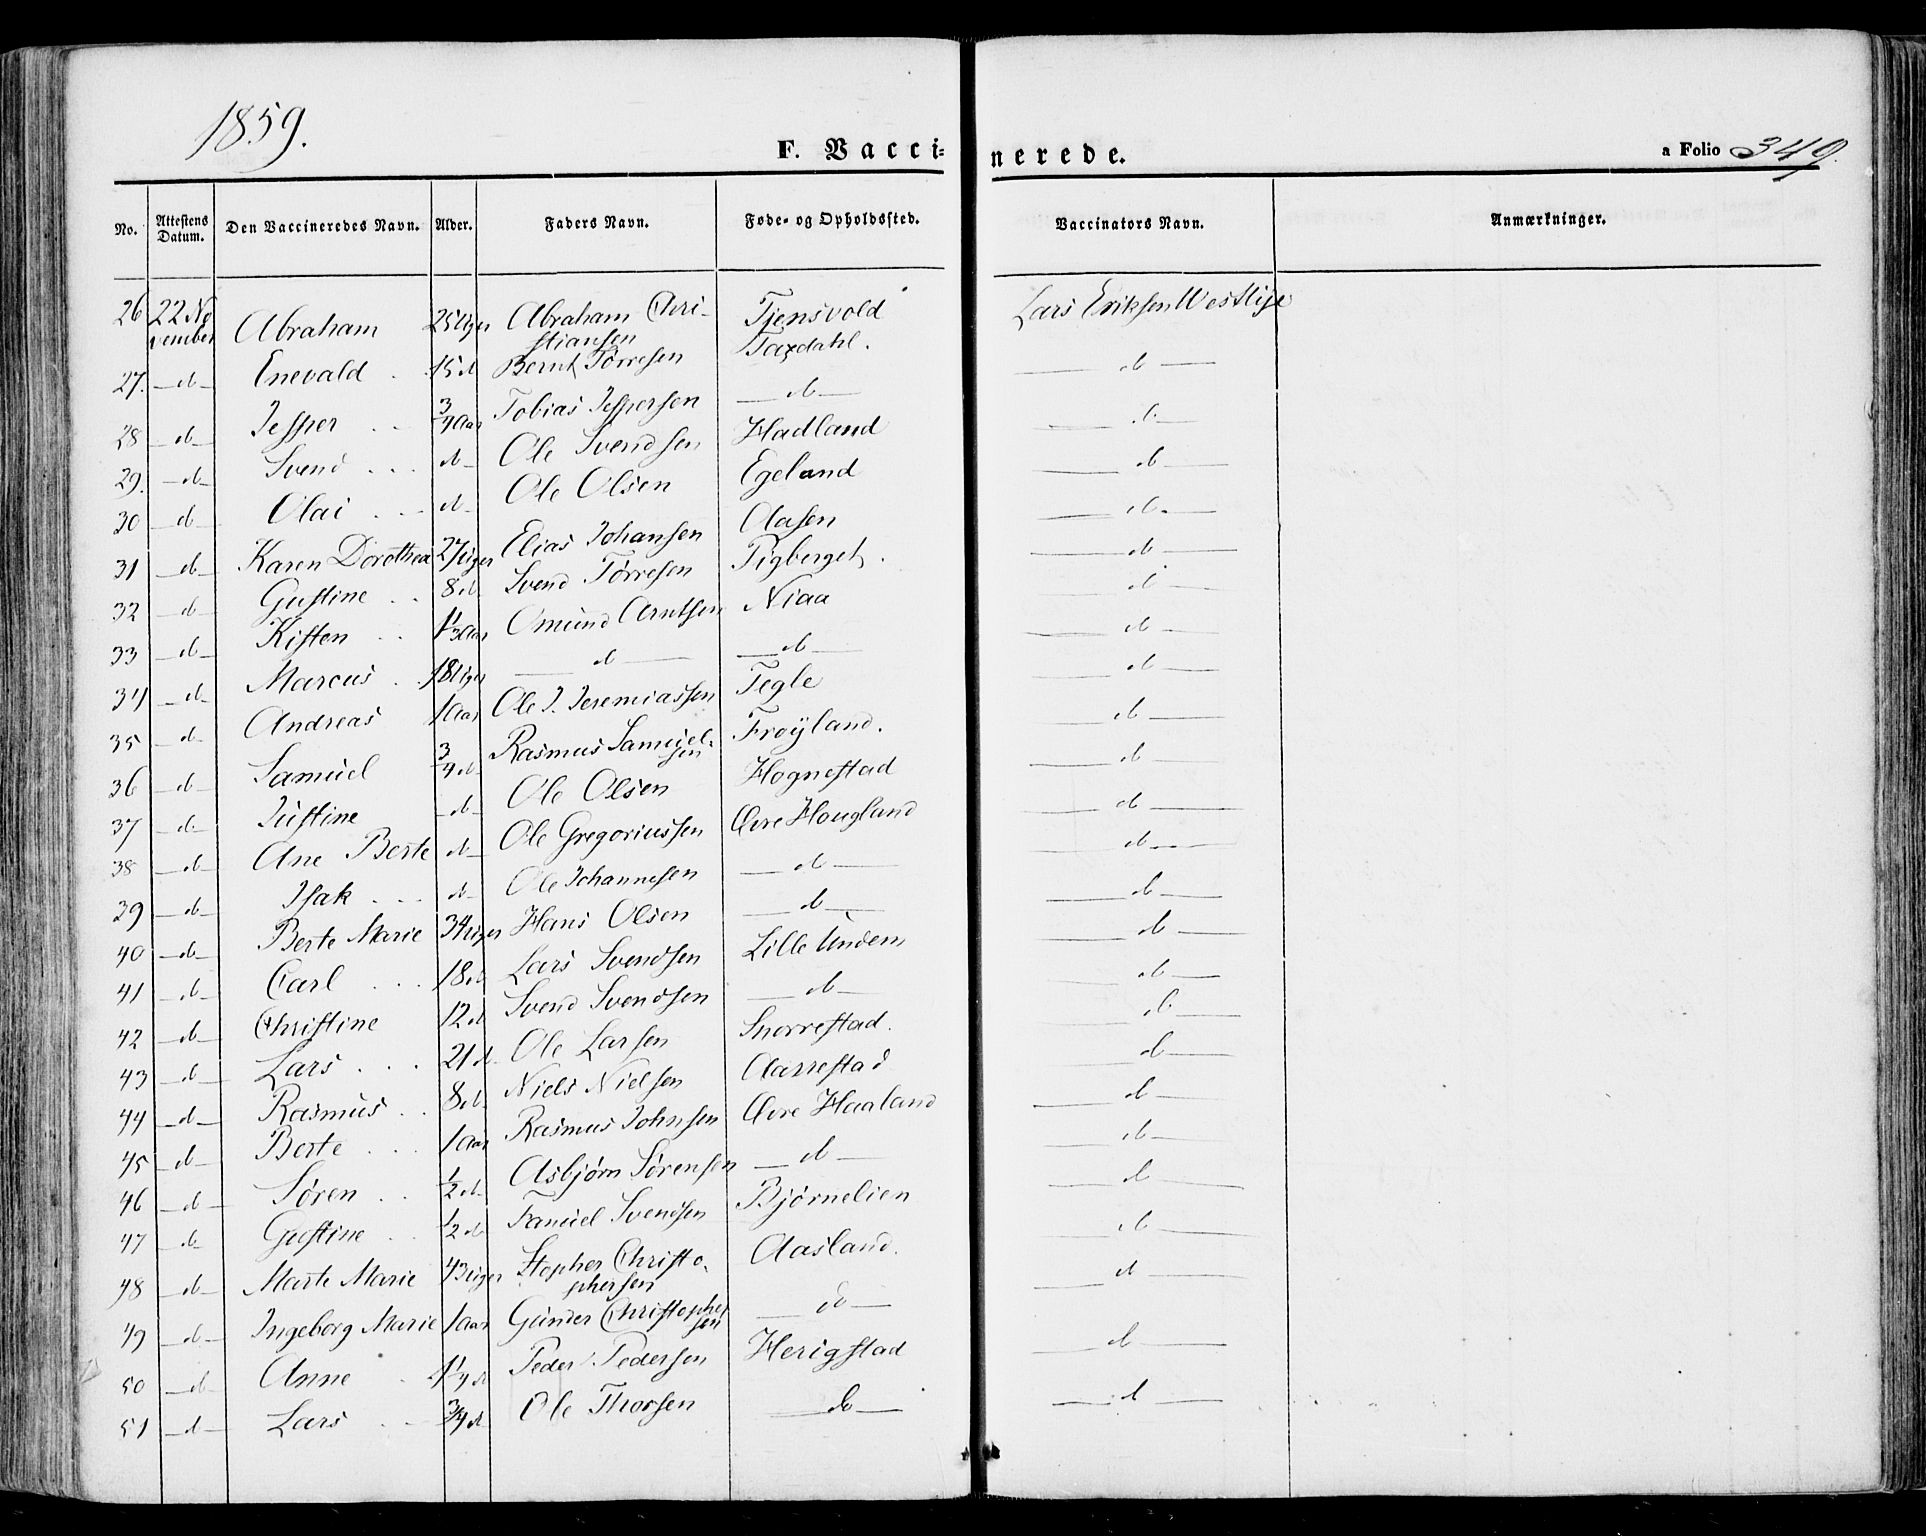 1859.
F. Vacci= nerede.
a Folio 349.
No. Attestens Datum. Den Vaccineredes Navn. Alder. Faders Navn. Føde- og Opholdssted. Vaccinators Navn. Anmærkninger.
26 22 November Abraham 25 Uger Abraham Christiansen Tjensvold Lars Eriksen Westlye
27. — d — Enevald . 15 d Bernt Tørresen Taxdahl. — d —
28 — d — Jesper . . 3/4 Aar Tobias Jespersen — d — — d —
29. — d — Svend . . . d — Ole Svendsen Hadland — d —
30 — d — Olai . . . d — Ole Olsen Egeland — d —
31 — d — Karen Dorothea 27 Uger Elias Johansen Aasen — d —
32 — d — Gustine . . 8 d. Svend Tørresen Tigberget. — d —
33 — d — Kisten . . 1 1/3 Aar Omund Arntsen Niaa — d —
34 — d — Marcus . 18 Uger — d — — d — — d —
35 — d — Andreas 1 Aar Ole J. Jeremiassen Tegle — d —
36 — d — Samuel 3/4 d — Rasmus Samuelsen Frøyland. — d —
37 — d — Justine — d — Ole Olsen Hognestad — d —
38 — d — Ane Berte d — Ole Gregoriussen Øvre Hougland — d —
39 — d — Isak . . . d — Ole Johannesen — d — — d —
40 — d — Berte Marie 34 Uger Hans Olsen — d — — d —
41 — d — Carl . . . 18 d Lars Svendsen Lille Undem — d —
42 — d — Christine 12 d Svend Svendsen — d — — d —
43 — d — Lars . . . 21 d. Ole Larsen Snorrestad. — d —
44 — d — Rasmus . . 8 d. Niels Nielsen Aarrestad — d —
45 — d — Berte . . . 1 Aar Rasmus Johnsen Øvre Haaland — d —
46 — d — Søren . . 1/2 d — Asbjørn Sørensen — d — — d —
47 — d — Gustine . . 1/2 d Samuel Svendsen Bjørnelien — d —
48 — d — Marte Marie 43 Uger Stopher Christophersen Aasland. — d —
49 — d — Ingeborg Marie 1 Aar Gunder Christophersen — do —
50 — d — Anne . 1 1/4 d Peder Pedersen Herigstad — d —
51 — d — Lars . . 3/4 d Ole Thorsen — do — — d —